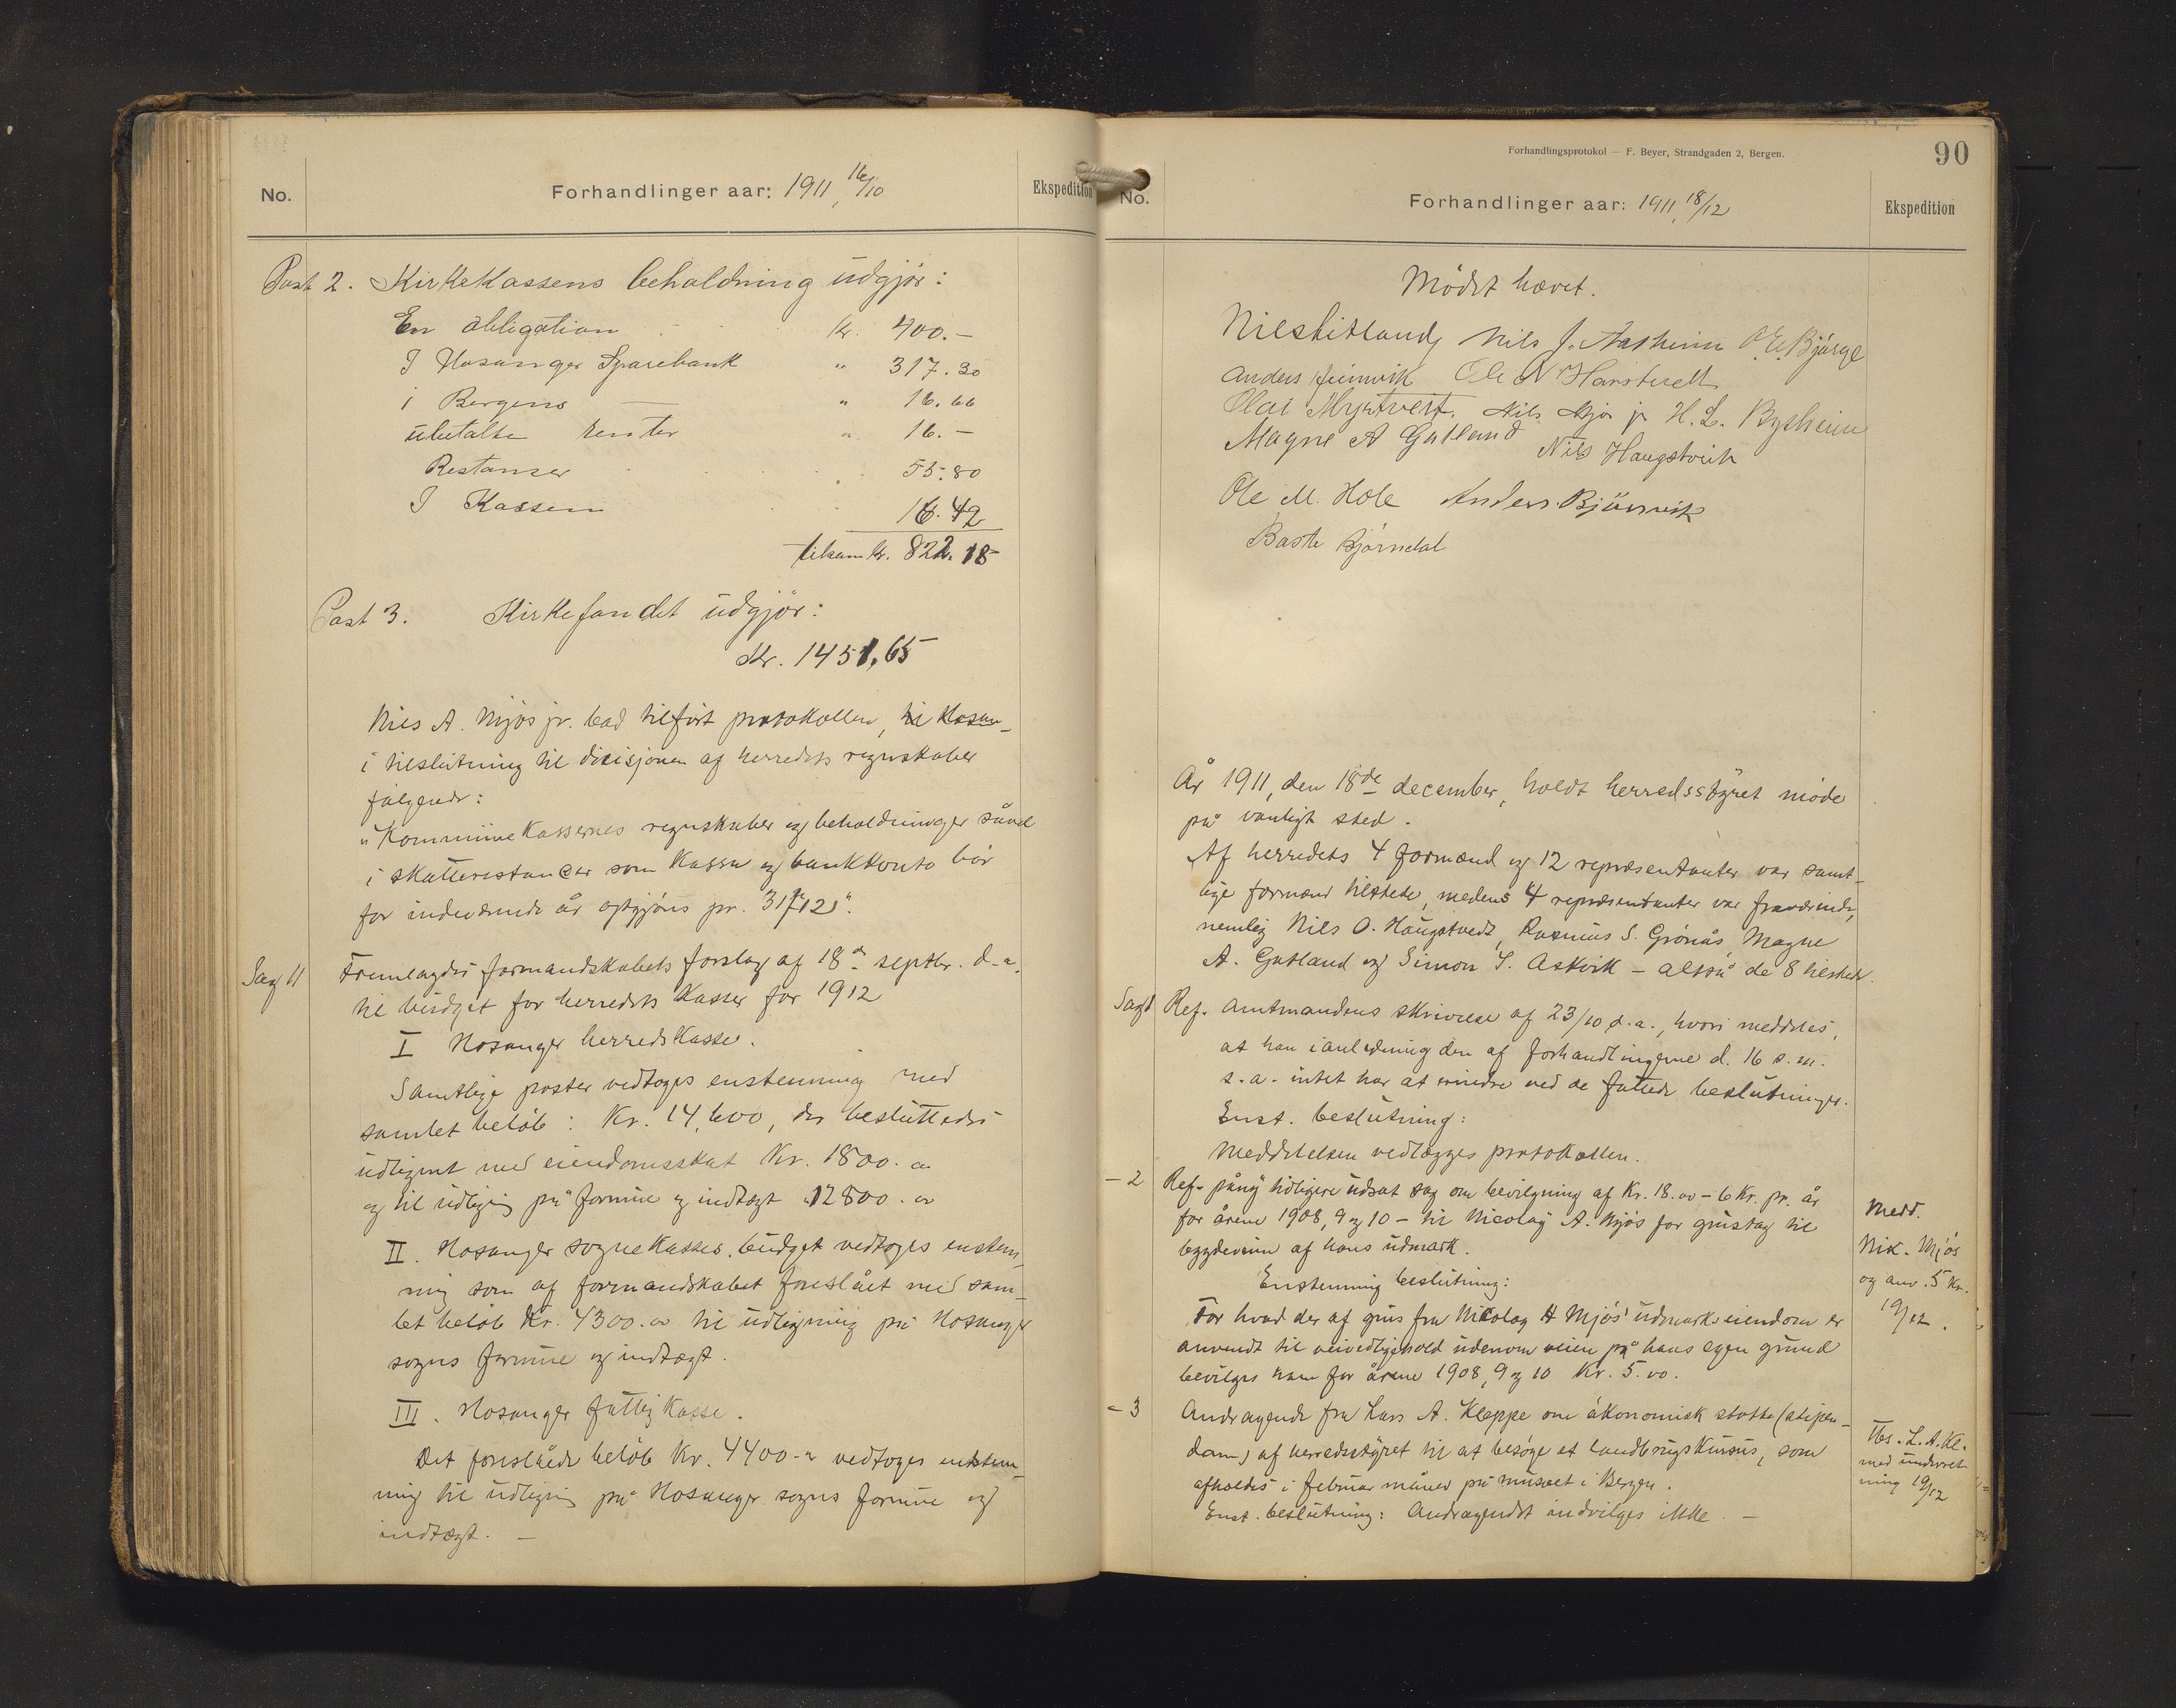 No.
Forhandlinger aar: 1911, 16/10
Ekspedition
Post 2. Kirkekassens beholdning udgjør:
En obligation kr. 400.-
I Hosanger Sparebank " 317.30
i Bergens — " 16.66
ubetalte renter " 16.-
Restanser 55.80
I Kassen 16.42
tilsam kr. 822.18
Post 3. Kirkefondet udgjør:
Kr. 1451,65
Nils A. Mjøs jr. bad tilført protokollen, til Hosan-
i tilslutning til disisjonen af herredets regnskaber
følgende:
"Kommunekassernes regnskaber og beholdninger såvel
i skatterestancer som kassa og bankkonto bør
for indeværende år opgjøres pr. 31/12".
Sag 11
Fremlagdes formandskabets forslag af 18de septbr. d.a.
til budget for herredets kasser for 1912
I Hosanger herredskasse.
Samtlige poster vedtoges enstemmig med
samlet beløb: Kr. 14,600, der besluttedes
udlignet med eiendomsskat Kr. 1800.00
og til udligning på formue og indtægt " 12800.00
II. Hosanger sognekasses budget vedtoges enstem-
mig som af formandskabet foreslået med sam-
let beløb Kr. 4300.00 til udligning på Hosanger
sogns formue og indtægt.
III. Hosanger fattigkasse.
Det foreslåede beløb Kr. 4400.00 vedtoges enstem-
mig til udligning på Hosanger sogns formue og
indtægt. —
Forhandlingsprotokol — F. Beyer, Strandgaden 2, Bergen.
90
No.
Forhandlinger aar: 1911, 18/12
Ekspedition
Mødet hævet.
Nils Nils J. Aasheim O. E. Bjørge
Anders Ole N
Olai Nils Mjøs jr H. L. Bysheim
Magne A Gatland Nils Haugstvedt
Ole M. Hole Anders Bjørnvik
Baste Bjørndal
År 1911, den 18de december, holdt herredsstyret møde
på vanligt sted.
Af herredets 4 formænd og 12 repræsentanter var samt-
lige formænd tilstede, medens 4 repræsentanter var fraværende,
nemlig Nils O. Haugstvedt, Rasmus S. Grønås, Magne
A. Gatland og Simon S. Askvik – altså de 8 tilstede.
Sag 1 Ref. amtmandens skrivelse af 23/10 d.a., hvori meddeles,
at han i anledning den af forhandlingerne d. 16 s.m.
s.a. intet har at erindre ved de fattede beslutninger.
Enst. beslutning:
Meddelelsen vedlægges protokollen.
- 2 Ref. påny tidligere udsat sag om bevilgning af Kr. 18.00 – 6 Kr. pr. år
for årene 1908, 9 og 10 – til Nicolay A. Mjøs for grustag til
bygdeveien af hans udmark.
Enstemmig beslutning:
For hvad der af grus fra Nicolay A Mjøs' udmarkseiendom er
anvendt til veivedligehold udenom veien på hans egen grund
bevilges ham for årene 1908, 9 og 10 Kr. 5.00.
Medd.
Nik. Mjøs
og anv. 5 Kr.
19/12.
- 3 Andragende fra Lars A. Kleppe om økonomisk støtte (stipen-
dium) af herredsstyret til at besøge et landbrugskursus, som
afholdes i februar måned på museet i Bergen.
Enst. beslutning: Andragendet indvilges ikke. —
Tbs. L. A. Kl.
med underret-
ning 19/12